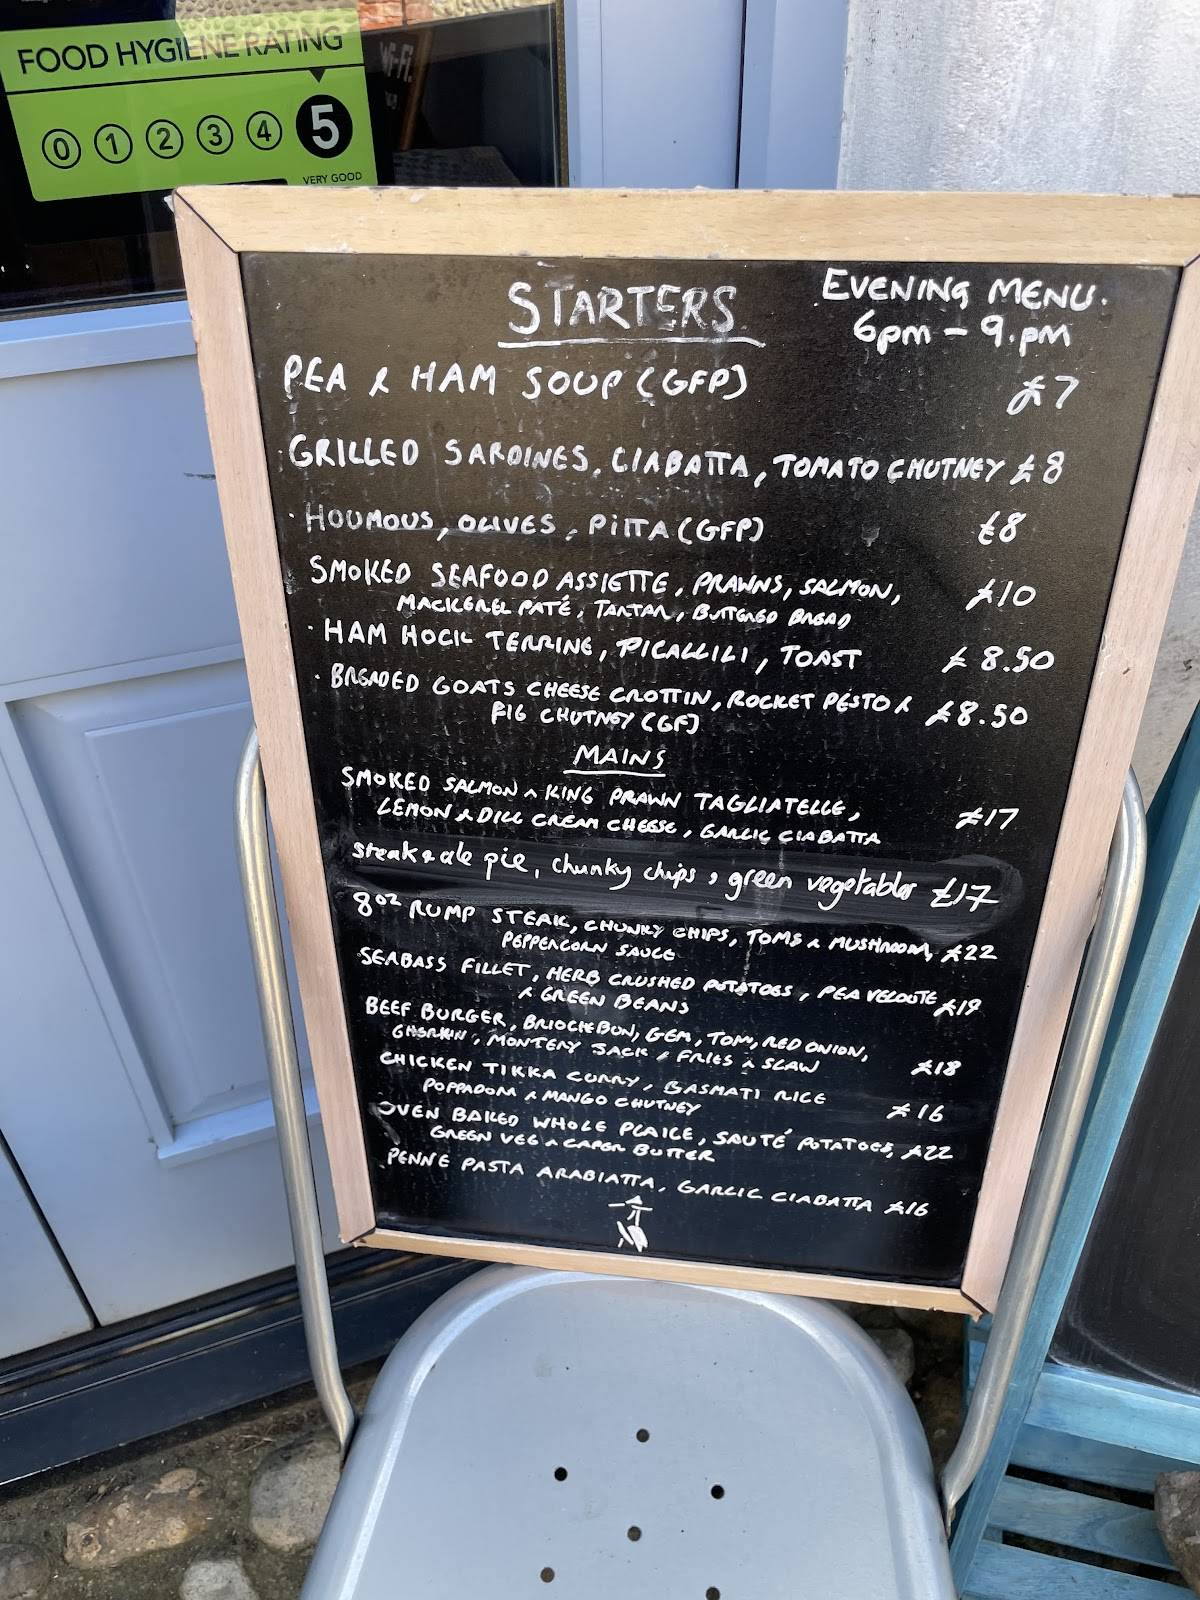 FOOD HYGIENE RATING
0 1 2 3 4 5
VERY GOOD
Wi-Fi
STARTERS
EVENING MENU.
6pm - 9.pm
PEA & HAM SOUP (GFP) £7
GRILLED SARDINES, CIABATTA, TOMATO CHUTNEY £8
· HOUMOUS, OLIVES, PITTA (GFP) £8
SMOKED SEAFOOD ASSIETTE, PRAWNS, SALMON, £10
MACKEREL PATÉ, TARTAR, BUTTERED BREAD
· HAM HOCK TERRINE, PICALLILI, TOAST £8.50
· BREADED GOATS CHEESE CROTTIN, ROCKET PESTO & £8.50
FIG CHUTNEY (GF)
MAINS
SMOKED SALMON & KING PRAWN TAGLIATELLE, £17
LEMON & DILL CREAM CHEESE, GARLIC CIABATTA
steak & ale pie, chunky chips, green vegetables £17
8oz RUMP STEAK, CHUNKY CHIPS, TOMS & MUSHROOM, £22
PEPPERCORN SAUCE
SEABASS FILLET, HERB CRUSHED POTATOES, PEA VELOUTE £19
& GREEN BEANS
BEEF BURGER, BRIOCHE BUN, GEM, TOM, RED ONION,
GHERKIN, MONTERY JACK, FRIES & SLAW £18
CHICKEN TIKKA CURRY, BASMATI RICE
POPPADOM & MANGO CHUTNEY £16
OVEN BAKED WHOLE PLAICE, SAUTÉ POTATOES, £22
GREEN VEG & CAPER BUTTER
PENNE PASTA ARABIATTA, GARLIC CIABATTA £16